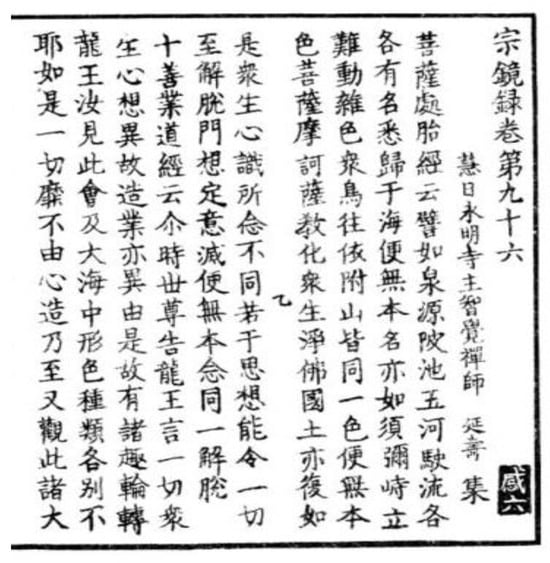 宗鏡録卷第九十六
慧日永明寺主智覺禪師 延壽 集
咸六
菩薩處胎經云譬如泉源陂池五河駛流各
各有名悉歸于海便無本名亦如須彌峙立
難動雜色衆鳥往依附山皆同一色便無本
色菩薩摩訶薩教化衆生淨佛國土亦復如
乙
是衆生心識所念不同若干思想能令一切
至解脱門想定意滅便無本念同一解脱
十善業道經云尒時世尊告龍王言一切衆
生心想異故造業亦異由是故有諸趣輪轉
龍王汝見此會及大海中形色種類各别不
耶如是一切靡不由心造乃至又觀此諸大